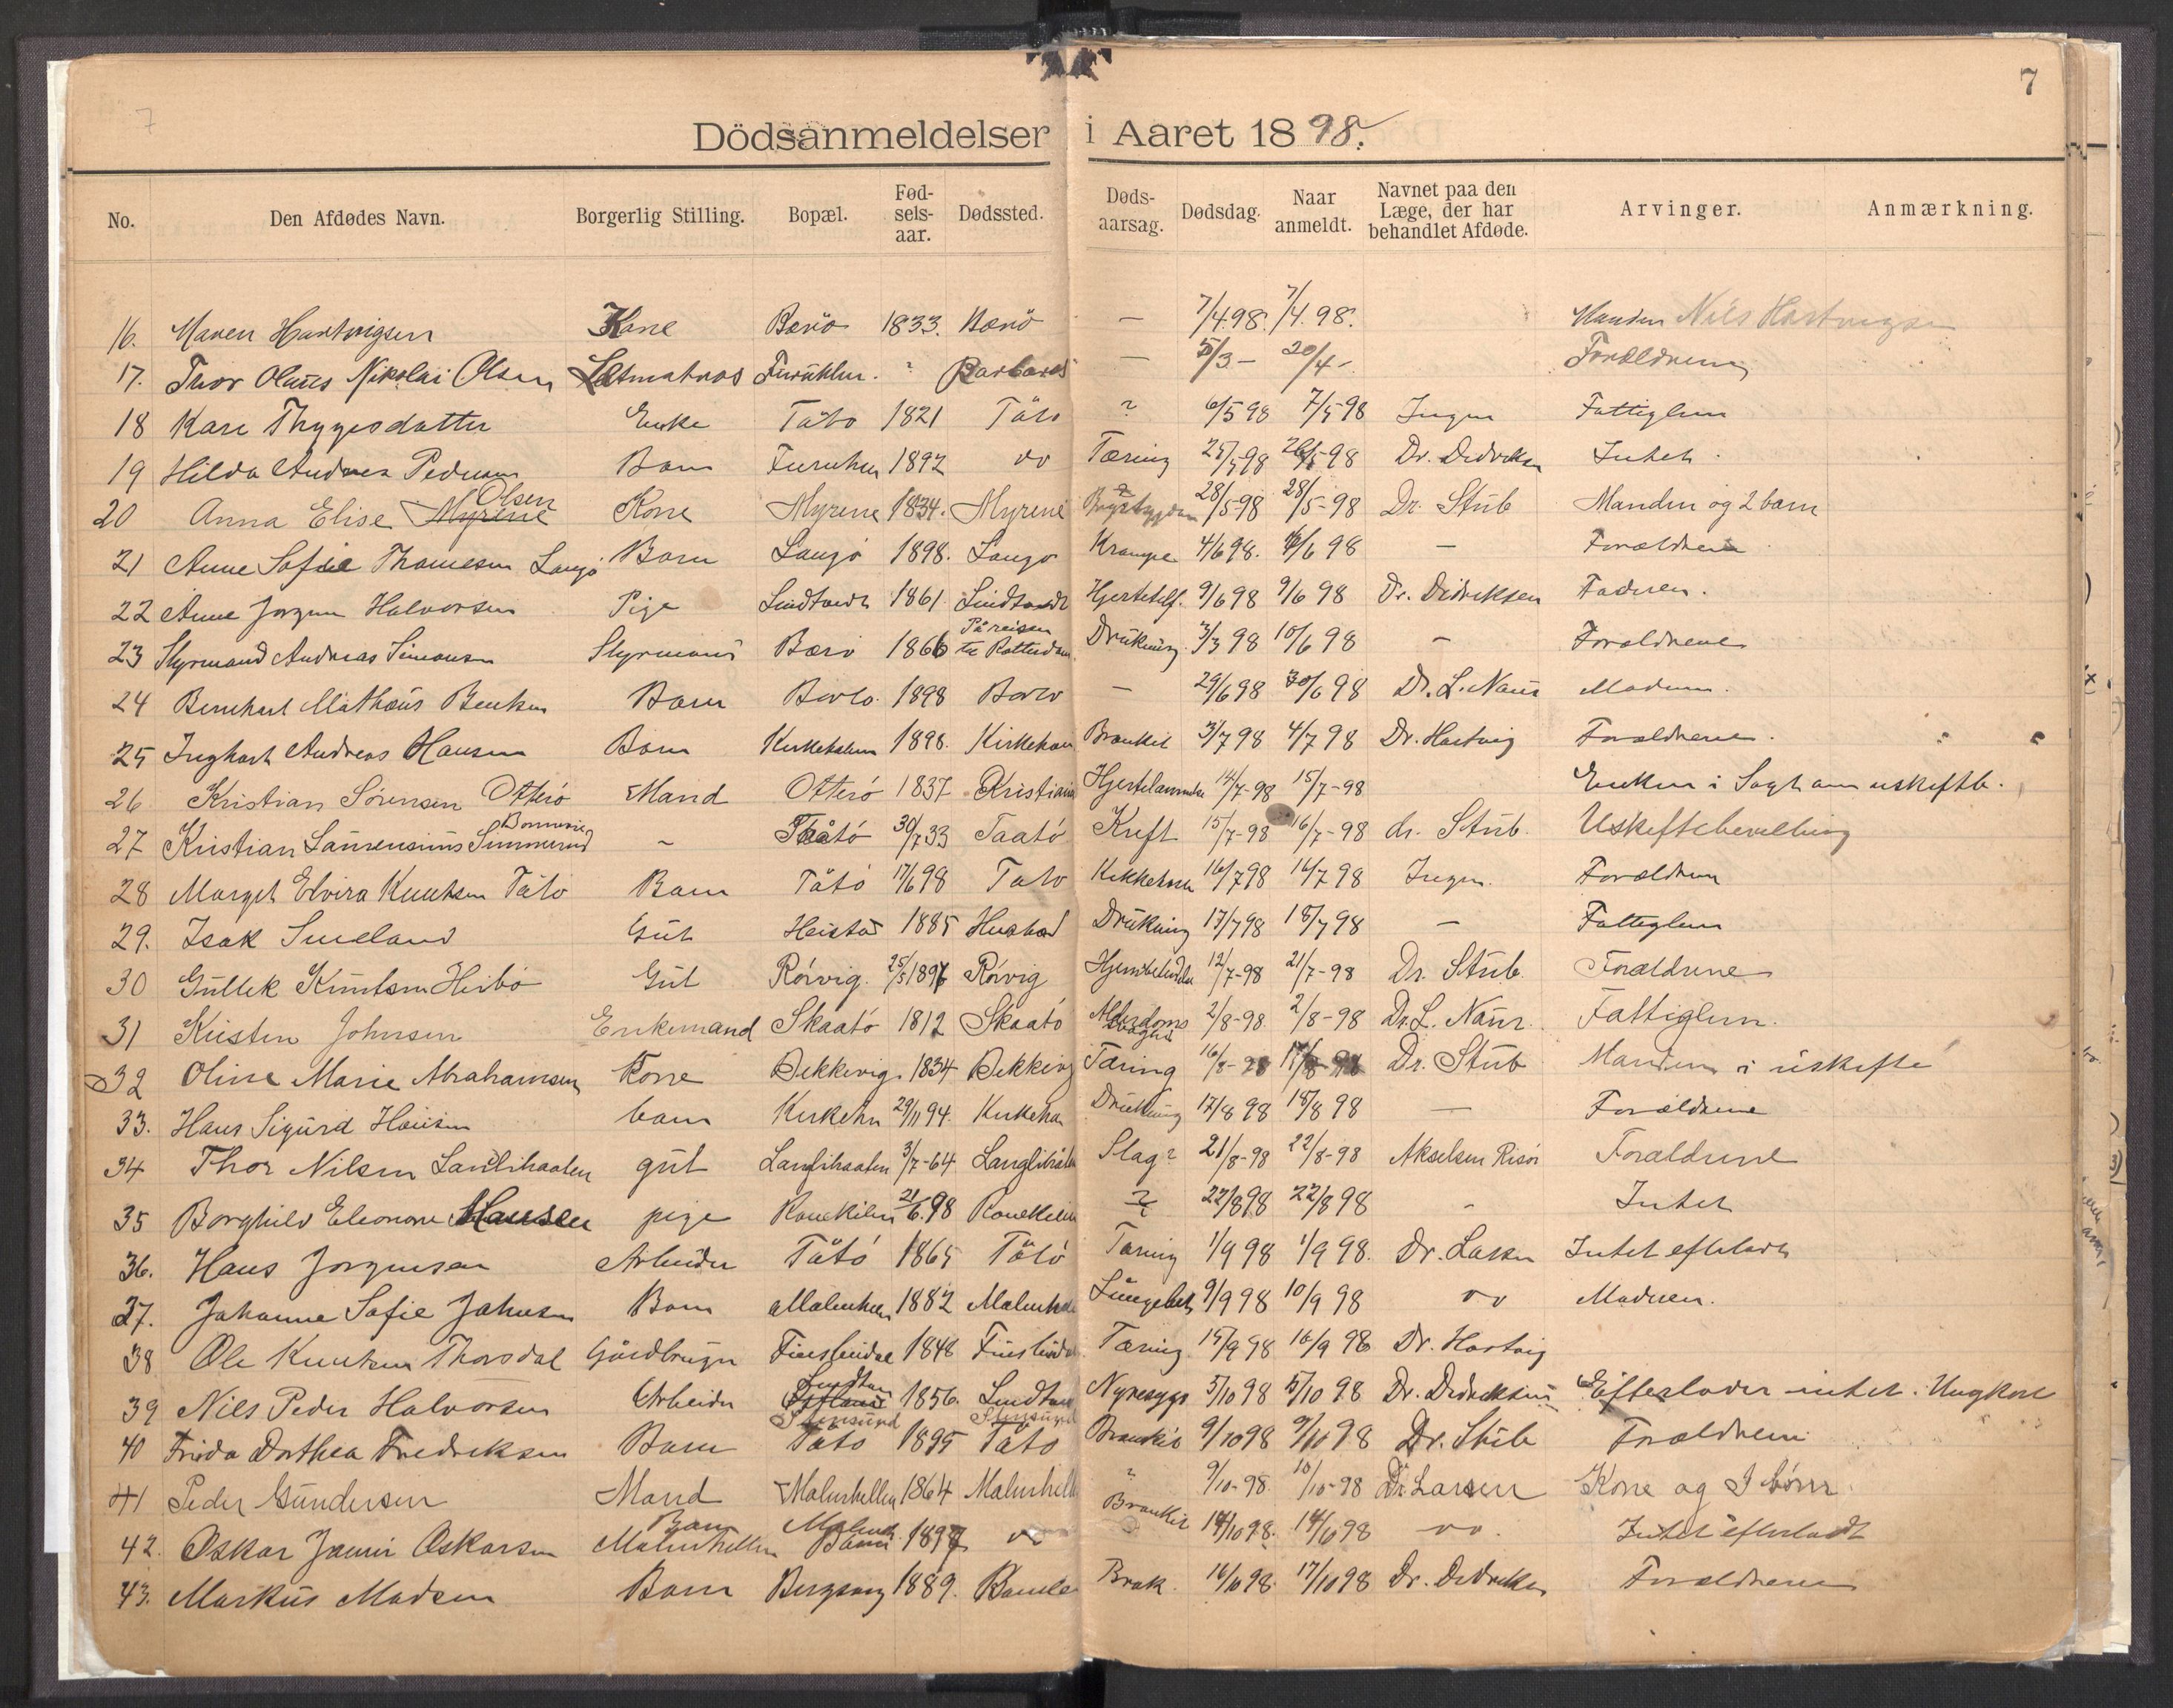 7
7
Dödsanmeldelser i Aaret 1898.
No. Den Afdødes Navn. Borgerlig Stilling. Bopæl. Fødselsaar. Dødssted. Dødsaarsag. Dødsdag. Naar anmeldt. Navnet paa den Læge, der har behandlet Afdøde. Arvinger. Anmærkning.
16. Maren Hartvigsen Kone Barö 1833. Barö — 7/4 98. 7/4. 98. Manden Nils Hartvigsen
17. Thor Olaus Nikolai Olsen Letmatros ? Barbados — 5/3 – 20/4 – Forældrene
18 Kari Thygesdatter Enke Tåtö 1821 Tåtö ? 6/5 98 7/5 98 Ingen Fattiglem
19 Hilda Andrea Pedersen Barn Furuholm 1892 do Tæring 25/5 98 26/5 98 Dr. Didriksen Intet
20 Anna Elise Myrene Olsen Kone Myrene 1834. Myrene 28/5-98 28/5-98 Dr. Stub Manden og 2 barn
21 Anne Sofie Thomesen Langö Barn Langö 1898. Langö Krampe 4/6 98. 6/6 98 — Forældrene
22 Anne Jorgine Halvorsen Pige Lindtvedt 1861 Lindtvedt Hjertefeil. 9/6 98 9/6 98 Dr. Didriksen Faderen.
23 Styrmand Andreas Simonsen Styrmand Barö 1866 På reisen til Rotterdam Drukning. 3/3 98 10/6 98 – Forældrene
24 Bernhart Mathæus Bentsen Barn 1898 — 29/6 98 30/6 98 Dr. L. Naur Moderen.
25 Inghart Andreas Hansen Barn Kirkeholmen 1898. Kirkeholm Bronkit 3/7 98 4/7 98 Dr. Hartvig Forældrene.
26 Kristian Sörensen Otterö Mand Otterö 1837 Kristiania 14/7-98 15/7-98 Enken i Sögt om uskiftb.
27 Kristian Laurensius Simmerud – Taatö 30/7 33 Taatö Kreft 15/7-98 16/7-98 dr. Stub. Uskiftebevilling
28 Margit Elvira Knutsen Tåtö Barn Tåtö 17/6 98 Tåtö Kikkehoste 16/7 98 16/7 98 Ingen. Forældrene
29. Isak Smeland Gut Heistad 1885 Drukning 17/7 98 18/7 98 — Fattiglem
30 Gullek Knutsen Heibö Gut Rörvig. 25/5 1896 Rörvig 12/7-98 21/7-98 Dr. Stub Forældrene
31 Kristen Johnsen Enkemand Skaatö 1812 Skaatö Alderdoms svaghed 2/8-98. 2/8-98 Dr. L. Naur. Fattiglem.
32 Oline Marie Abrahamsen Kone Bekkevig. 1834 Bekkevig Tæring 16/8-98 17/8-98 Dr. Stub Manden i uskifte
33. Hans Sigurd Hansen barn Kirkeholm 29/11 94. Kirkeholm Drukning 17/8 98 18/8 98 — Forældrene
34 Thor Nilsen Langlibraaten gut Langlibraaten 3/7-64 Langlibråten Slag? 21/8-98 22/8-98 Akselsen Risör Forældrene
35 Borghild Eleonore Hansen pige 21/6. 98 ? 22/8 98 22/8 98 – Intet
36. Hans Jorgensen Arbeider Tåtö 1865 Tåtö Tæring 1/9 98 1/9 98. Dr. Larsen Intet efterladt
37. Johanne Sofie Johnsen Barn Malmhellen 1882 Malmhellen Lungebet. 9/9 98 10/9 98 do Moderen.
38 Ole Knutsen Thorsdal Gårdbruger 1848 Tæring. 15/9 98 16/9 98 Dr. Hartvig
39 Nils Peder Halvorsen Arbeider Lindtvedt 1856. Lindtvedt Nyresyge 5/10 98 5/10 98 Dr. Didriksen Efterlader intet. Ungkarl
40 Frida Dorthea Fredriksen Barn Stensund Tåtö 1895 Stensund Tåtö Bronkit 9/10 98 9/10 98 Dr. Stub Forældrene
41 Peder Gundersen Mand Malmhellen 1864 Malmhellen ? 9/10-98. 10/10-98 Dr. Larsen Kone og 3 börn.
42. Oskar Jamir Oskarsen Barn Malmhellen 1897 do Bronkit 14/10 98. 14/10 98 do. Intet efterladt
43. Markus Madsen Barn 1889. Bamle Brok. 16/10 98. 17/10 98 Dr. Didriksen Forældrene